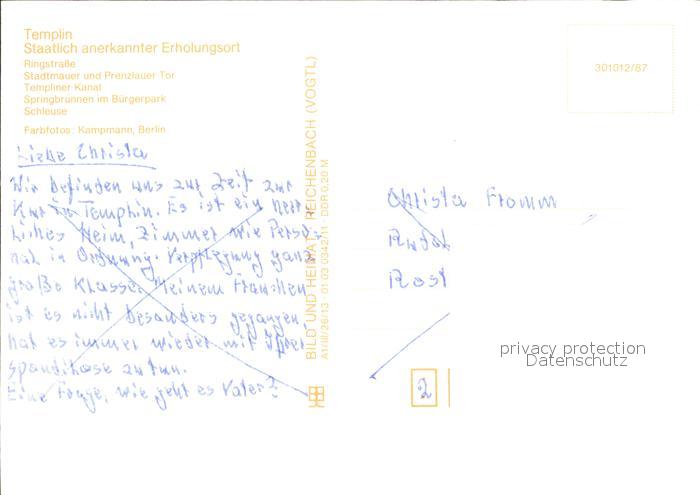 Templin
Staatlich anerkannter Erholungsort
Ringstraße
Stadtmauer und Prenzlauer Tor
Templiner Kanal
Springbrunnen im Bürgerpark
Schleuse
Farbfotos: Kampmann, Berlin
Liebe Christa
Wir befinden uns zur Zeit zur
Kur in Templin. Es ist ein herr-
liches Heim, Zimmer wie Perso-
nal in Ordnung. Verpflegung ganz
große Klasse. Meinem Frauchen
ist es nicht besonders gegangen,
hat es immer wieder mit
zu tun.
Eine Frage, wie geht es Vater?
BILD UND HEIMAT REICHENBACH (VOGTL)
A1/III/26/13 · 01 03 0342/11 · DDR 0,20 M
301012/87
Christa Fromm
Rudol
Rost
2
privacy protection
Datenschutz